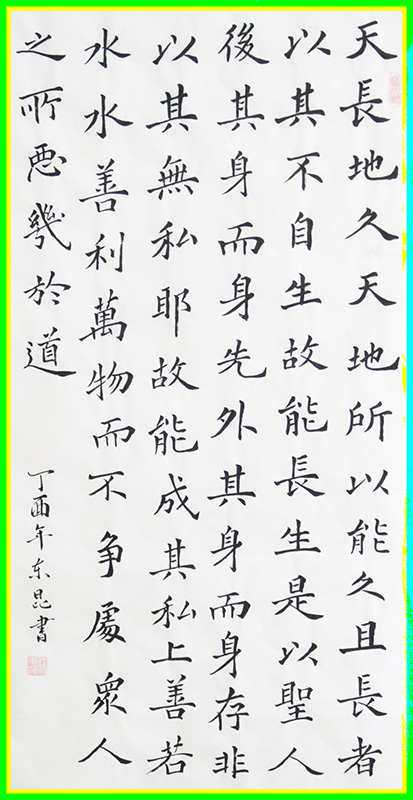 天長地久天地所以能久且長者
以其不自生故能長生是以聖人
後其身而身先外其身而身存非
以其無私耶故能成其私上善若
水水善利萬物而不争處眾人
之所惡幾於道
丁酉年东昆書